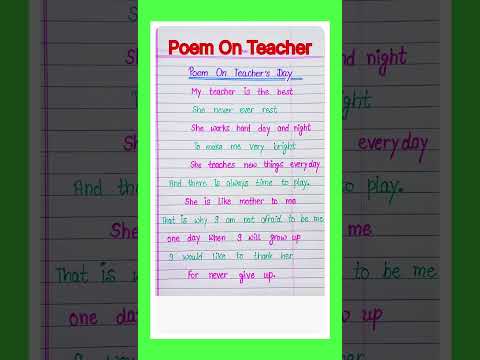 Poem On Teacher
Poem On Teacher's Day
My teacher is the best
She never ever rest
She works hard day and night
To make me very bright
She teaches new things everyday
And there is always time to play.
She is like mother to me
That is why I am not afraid to be me
one day when I will grow up
I would like to thank her
For never give up.
And th
She
That is w
one da
I would
nd night
everyday
to play.
to be me
up